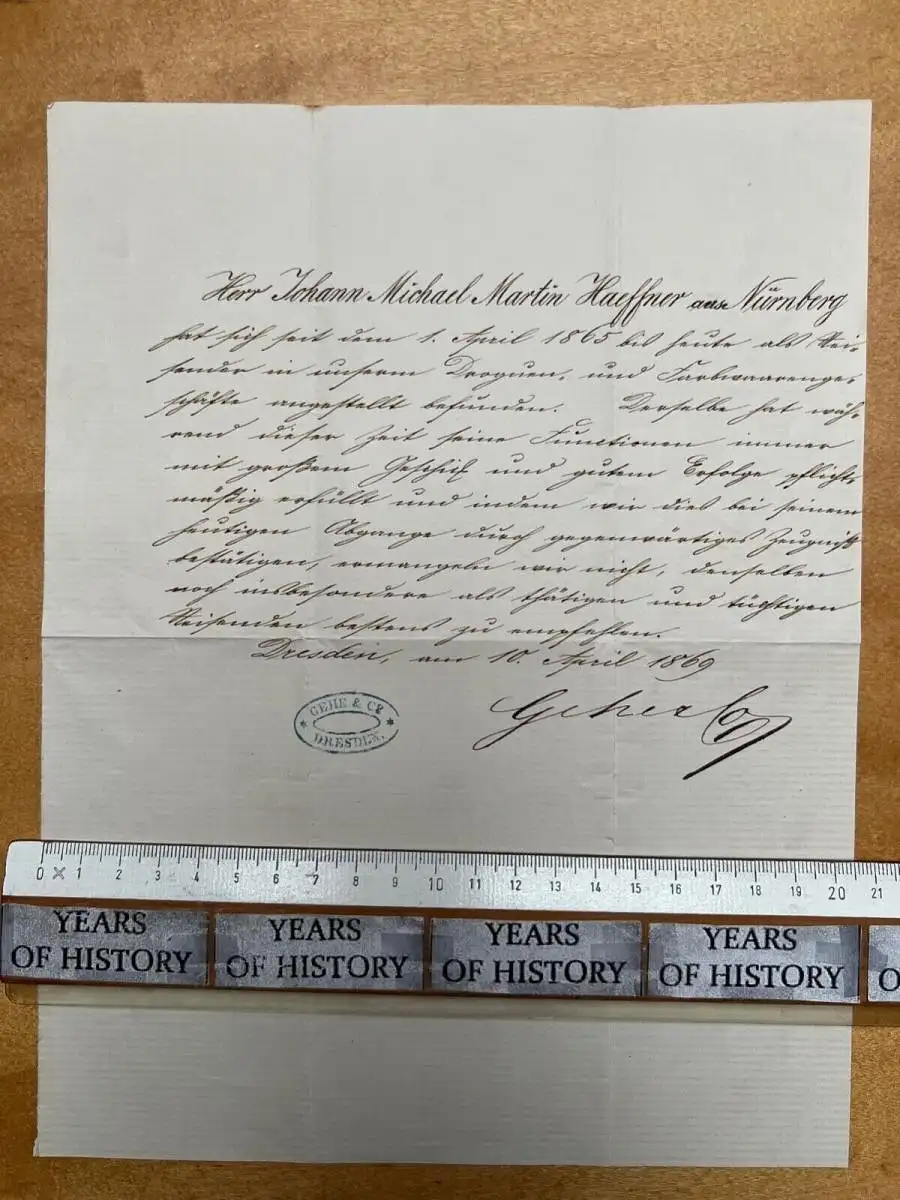 Herr Johann Michael Martin Haeffner aus Nürnberg
hat sich seit dem 1. April 1865 bis heute als Rei-
sender in unserem Droguen- und Farbwaarenge-
schäfte angestellt befunden. Derselbe hat wäh-
rend dieser Zeit seine Functionen immer
mit großem Geschick und gutem Erfolge pflicht-
mäßig erfüllt und indem wir dies bei seinem
heutigen Abgange durch gegenwärtiges Zeugniß
bestätigen, ermangeln wir nicht, denselben
noch insbesondere als thätigen und tüchtigen
Reisenden bestens zu empfehlen.
Dresden, am 10. April 1869
GEHE & Co
DRESDEN.
Gehe & Co
0 1 2 3 4 5 6 7 8 9 10 11 12 13 14 15 16 17 18 19 20 21
YEARS OF HISTORY
YEARS OF HISTORY
YEARS OF HISTORY
YEARS OF HISTORY
O